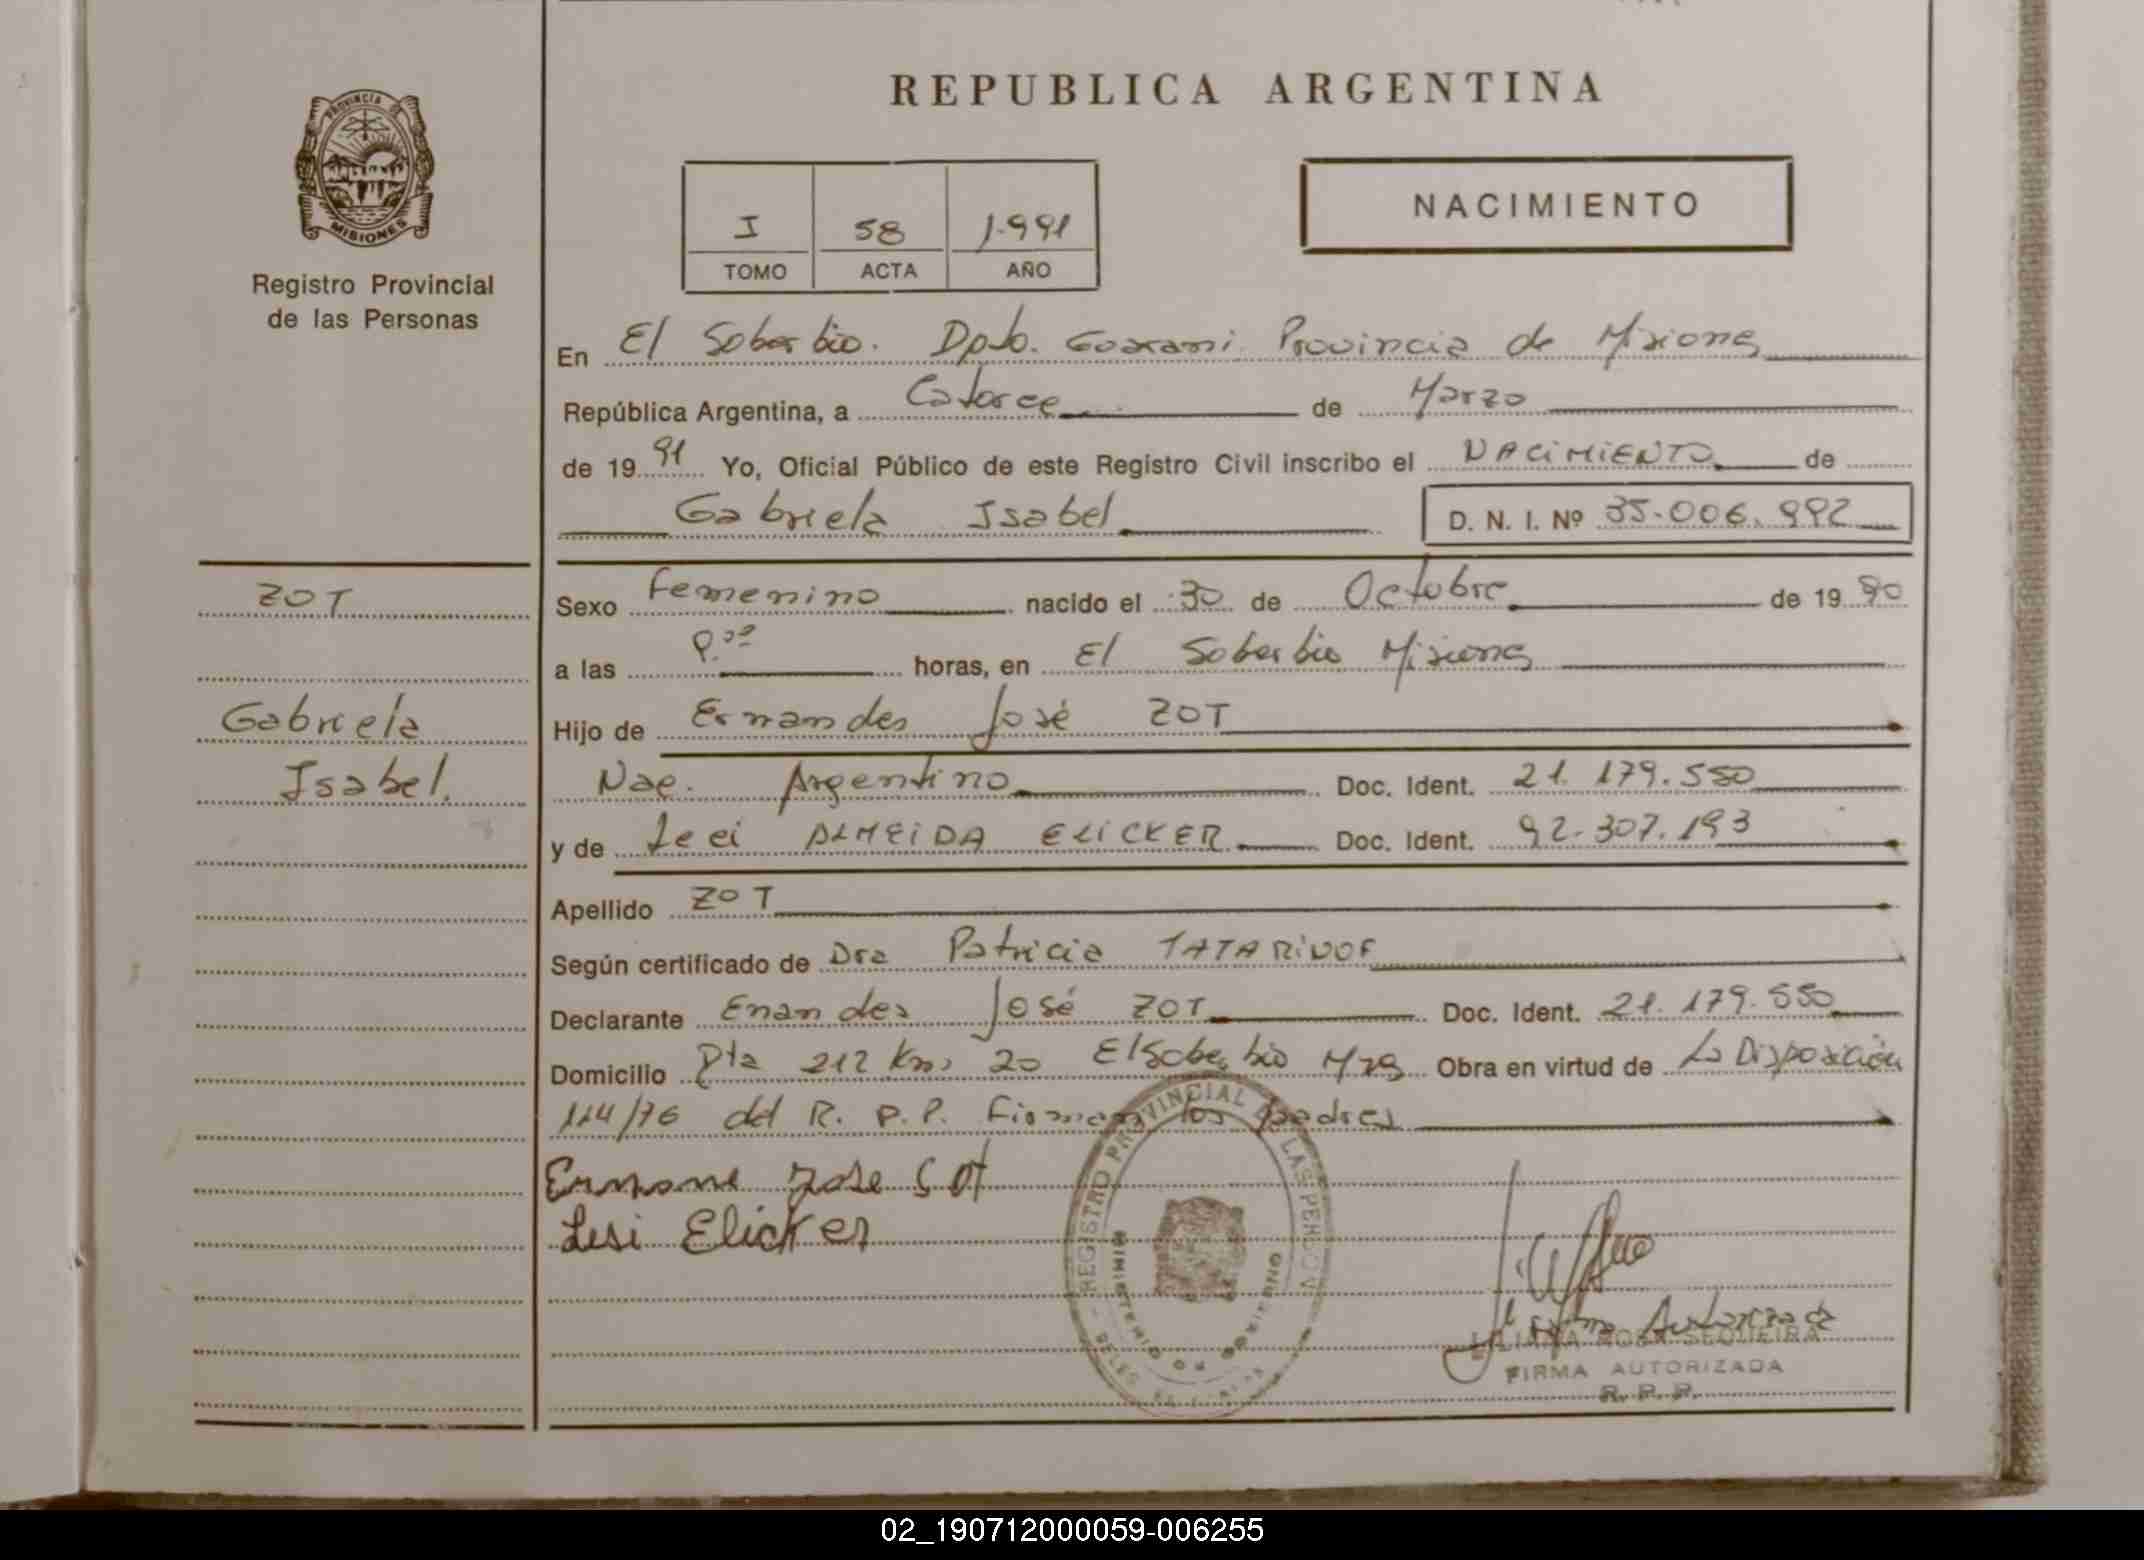 REPUBLICA ARGENTINA
PROVINCIA DE
MISIONES
Registro Provincial
de las Personas
I 58 1.991
TOMO ACTA AÑO
NACIMIENTO
En El Soberbio. Dpto. Guarani Provincia de Misiones
República Argentina, a Catorce de Marzo
de 19 91 Yo, Oficial Público de este Registro Civil inscribo el NACIMIENTO de
Gabriela Isabel D. N. I. Nº 35.006.992
ZOT
Gabriela
Isabel.
Sexo Femenino nacido el 30 de Octubre de 19 90
a las horas, en El Soberbio Misiones
Hijo de Ernandes José ZOT
Nac. Argentino Doc. Ident. 21.179.550
y de Leci ALMEIDA ELICKER Doc. Ident. 92.307.193
Apellido ZOT
Según certificado de Dra Patricia TATARINOF
Declarante Enandes José ZOT Doc. Ident. 21.179.550
Domicilio Pta 212 Km 20 El Soberbio Mns Obra en virtud de La Disposición
114/76 del R. P. P. Firman los padres
jose Sot
Lesi Elicker
REGISTRO PROVINCIAL DE LAS PERSONAS
MINISTERIO DE GOBIERNO
Firma Autorizada
ROSA SEQUEIRA
FIRMA AUTORIZADA
R. P. P.
02_190712000059-006255